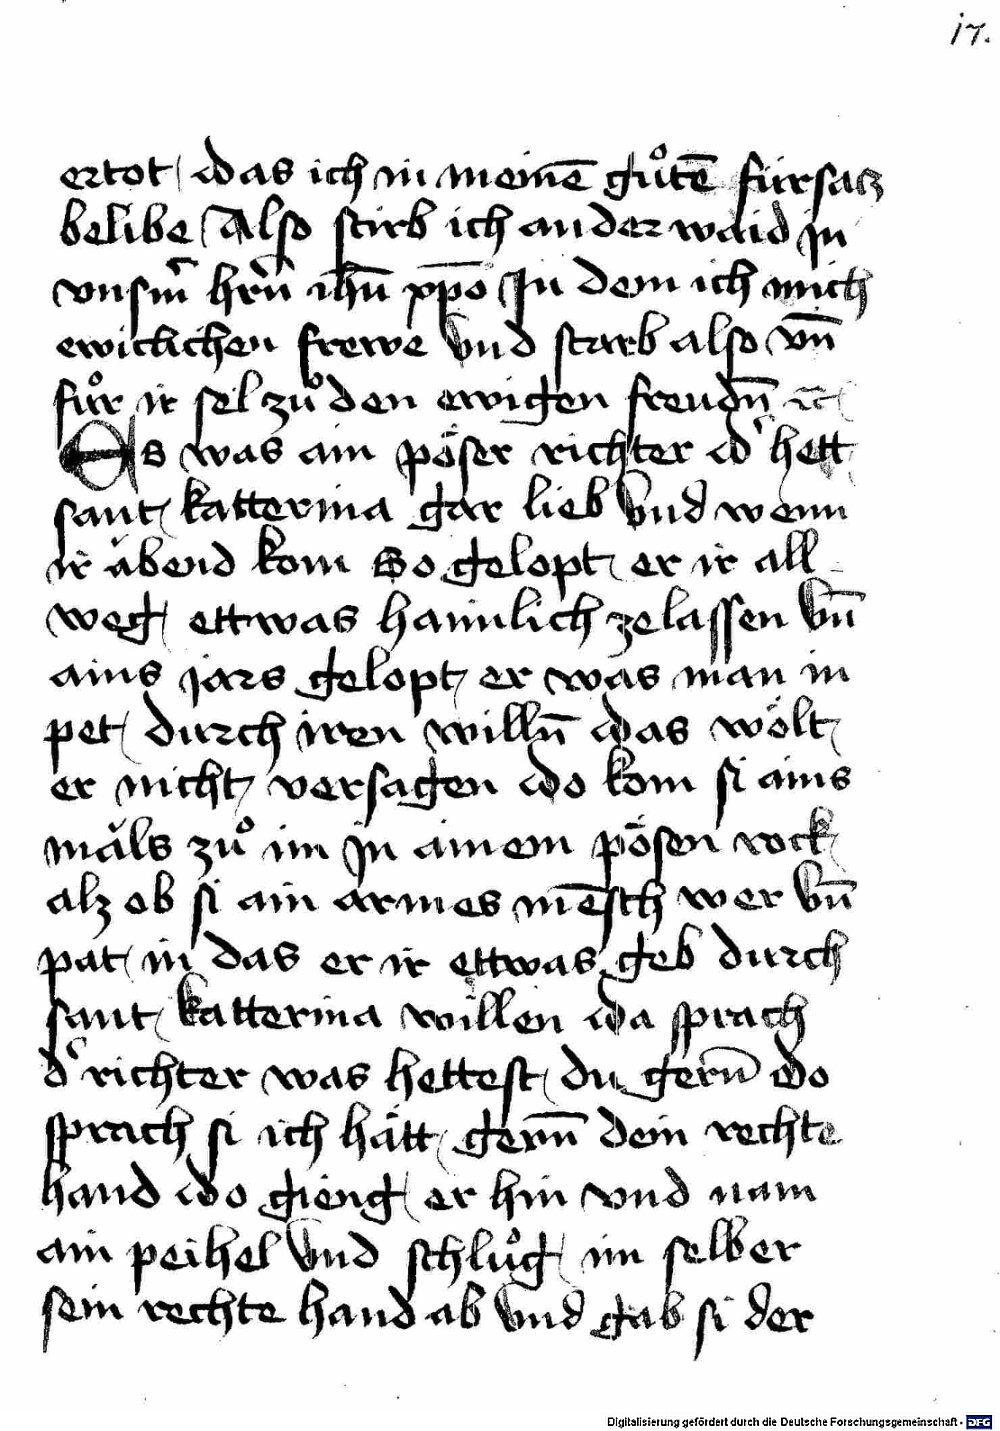 17.
ertot das ich in meinē gůtē fürsacz
belibe Also stirb ich anderwaid jn
vnsm̄ hrñ ihū xp̄o Jn dem ich mich
ewiclichen frewe vnd starb also vn̄
fůr ir sel zů den ewigen freudn̄ ꝛc̄
Es was ain pöser richter dʼ hett
sant katterina gar lieb vnd wenn
ir äbend kom So gelopt er ir all
weg ettwas haimlich ze lassen vn̄
ains jars gelopt er was man in
pet durch iren willn̄ das wölt
er nicht versagen do kom si ains
mäls zů im Jn ainem pösen rock
alz ob si ain armes mēsch wer vn̄
pat in das er ir ettwas geb durch
sant katterina willen da sprach
dʼ richter was hettest du gern̄ do
sprach si ich hätt gern̄ dein rechte
hand do gieng er hin vnd nam
ain peihel vnd schlůg im selber
sein rechte hand ab vnd gab si der
Digitalisierung gefördert durch die Deutsche Forschungsgemeinschaft - DFG